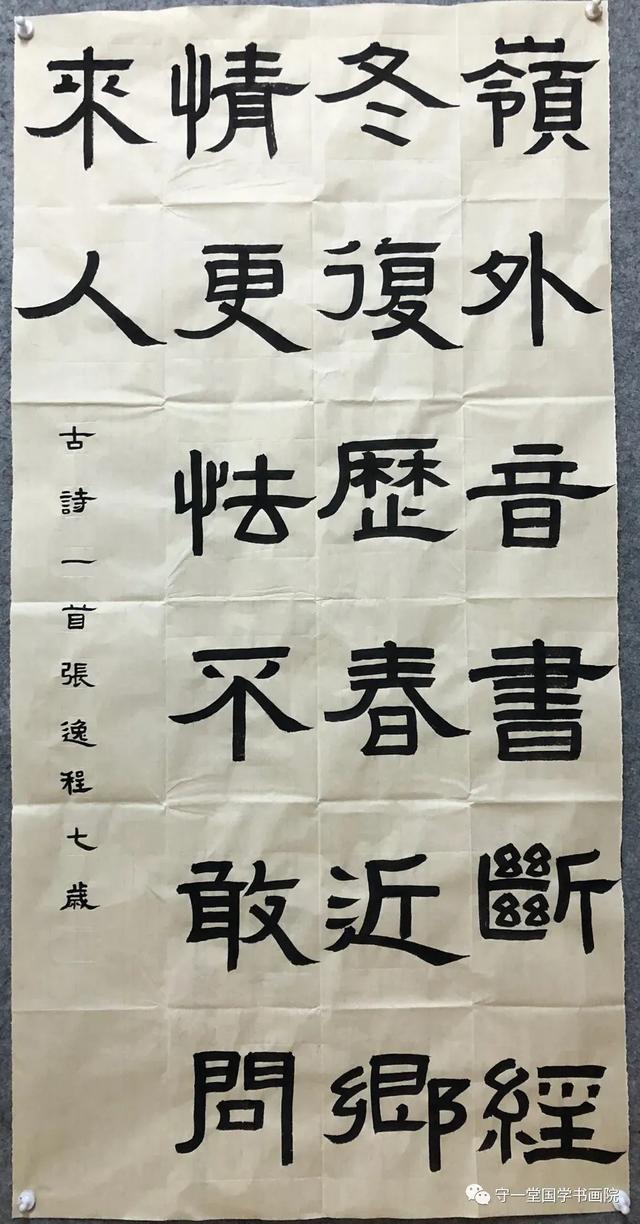 嶺外音書斷經
冬復歷春近鄉
情更怯不敢問
來人
古詩一首張逸程七歲
守一堂国学书画院